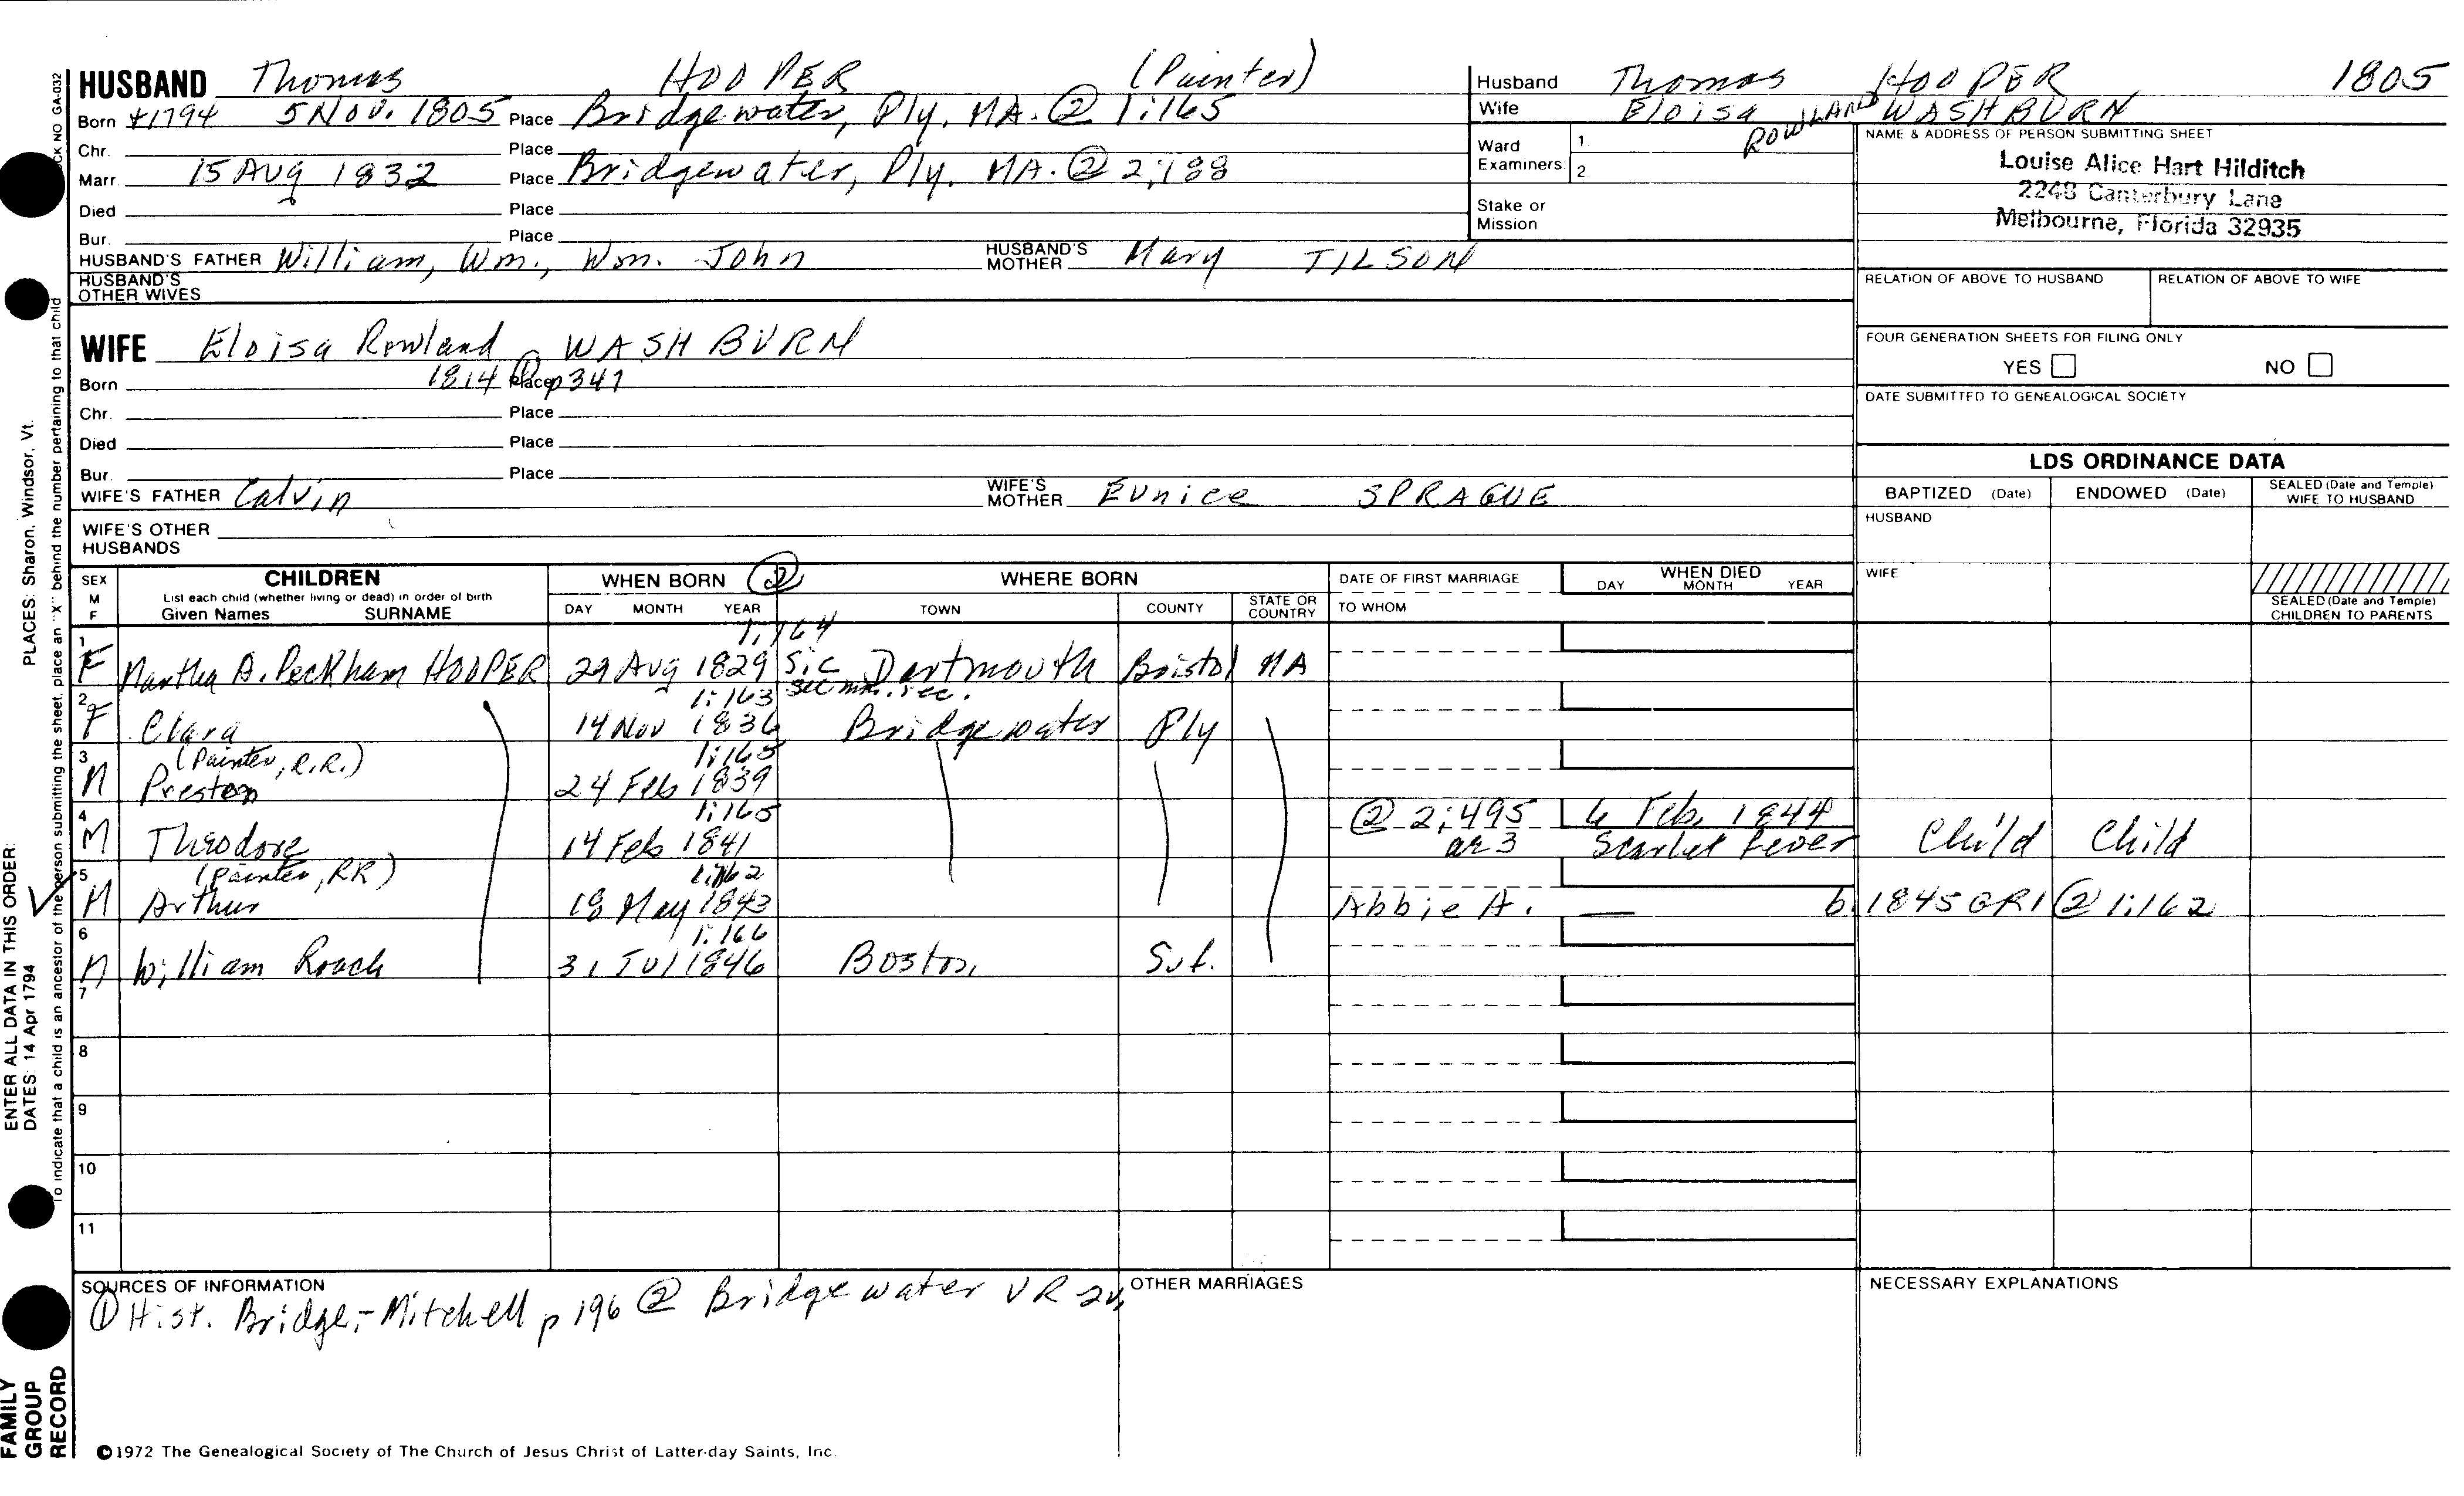 HUSBAND Thomas HOOPER (Painter)
Born +1794 5 Nov. 1805 Place Bridgewater, Ply, MA. @ 1:165
Chr. Place
Marr. 15 AUg 1832 Place Bridgewater, Ply. MA. ② 2:188
Died Place
Bur. Place
HUSBAND'S FATHER William, Wm., Wm. John HUSBAND'S MOTHER Mary TILSON
HUSBAND'S OTHER WIVES
WIFE Eloisa Rowland WASHBURN
Born 1814 ① Place p347
Chr. Place
Died Place
Bur. Place
WIFE'S FATHER Calvin WIFE'S MOTHER Eunice SPRAGUE
WIFE'S OTHER HUSBANDS
Husband Thomas HOOPER 1805
Wife Eloisa ROWLAND WASHBURN
Ward Examiners: 1. 2.
Stake or Mission
NAME & ADDRESS OF PERSON SUBMITTING SHEET
Louise Alice Hart Hilditch
2248 Canterbury Lane
Melbourne, Florida 32935
RELATION OF ABOVE TO HUSBAND RELATION OF ABOVE TO WIFE
FOUR GENERATION SHEETS FOR FILING ONLY
YES NO
DATE SUBMITTED TO GENEALOGICAL SOCIETY
LDS ORDINANCE DATA
BAPTIZED (Date) ENDOWED (Date) SEALED (Date and Temple) WIFE TO HUSBAND
HUSBAND
WIFE
SEALED (Date and Temple) CHILDREN TO PARENTS
SEX M F CHILDREN WHEN BORN ② WHERE BORN DATE OF FIRST MARRIAGE WHEN DIED
List each child (whether living or dead) in order of birth
Given Names SURNAME DAY MONTH YEAR TOWN COUNTY STATE OR COUNTRY TO WHOM DAY MONTH YEAR
1:164
1 F Martha A. Peckham HOOPER 29 Aug 1829 Sic Dartmouth Bristol MA
1:163
2 F Clara 14 Nov 1836 Bridgewater Ply
(Painter, R.R.) 1:165
3 M Preston 24 Feb 1839
1:165 @ 2:495 6 Feb. 1844
4 M Theodore 14 Feb 1841 ae 3 Scarlet Fever Child Child
(Painter, RR) 1:162
5 M Arthur 18 May 1843 Abbie A. — b. 1845 GR1 @ 1:162
1:166
6 M William Roach 31 Jul 1846 Boston, Suf.
7
8
9
10
11
SOURCES OF INFORMATION OTHER MARRIAGES NECESSARY EXPLANATIONS
① Hist. Bridge,- Mitchell p 196 ② Bridgewater VR 2v,
©1972 The Genealogical Society of The Church of Jesus Christ of Latter-day Saints, Inc.
ENTER ALL DATA IN THIS ORDER:
DATES: 14 Apr 1794 PLACES: Sharon, Windsor, Vt.
To indicate that a child is an ancestor of the person submitting the sheet, place an "X" behind the number pertaining to that child
NO GA-032
FAMILY
GROUP
RECORD